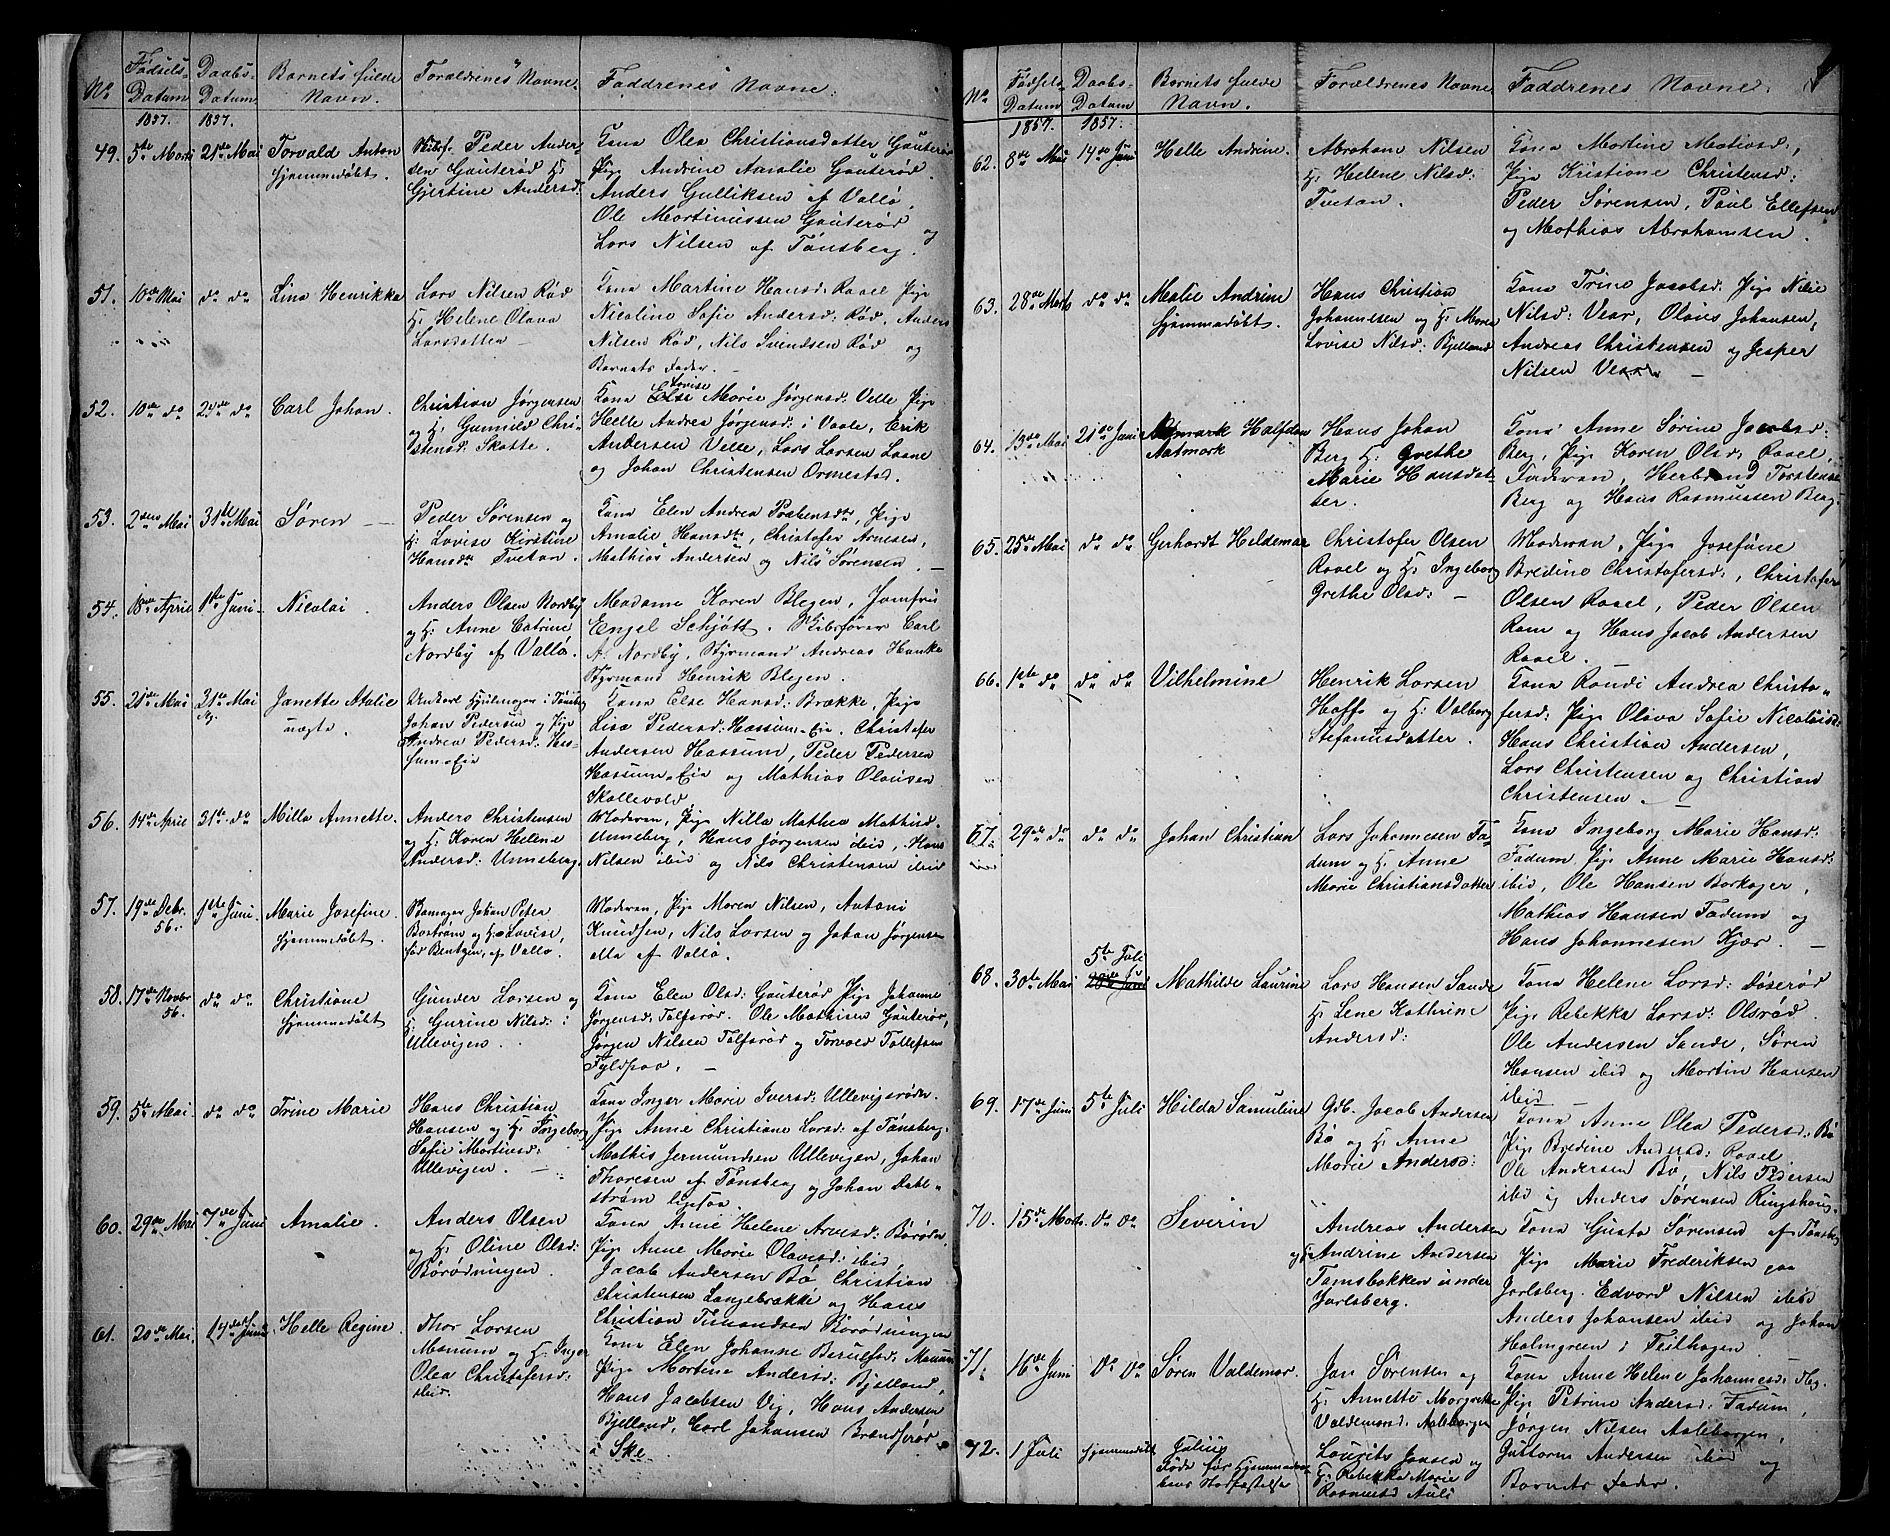 No
Fødsels-
Datum
1857.
Daabs-
Datum
1857.
Barnets fulde
Navn.
Forældrenes Navne
Faddrenes Navne.
49. 5te Marts 21de Mai Torvald Anton
hjemmedøbt.
Peder Ander-
sen Gauterød H:
Gjertine Andersd:
Kona Olea Christiansdatter Gauterød
Pige Andrine Amalie Gauterød.
Anders Gulliksen af Vallø,
Ole Martinussen Gauterød og
Lars Nilsen af Tønsberg.
51. 10de Mai do do Lina Henrikka
Lars Nilsen Rød
H: Helene Olava
Larsdatter
Kona Martine Hansd: Ravel Pige
Nicoline Sofie Andersd: Rød, Anders
Nilsen Rød, Nils Svendsen Rød og
Barnets Fader.
52. 10de do 24de do Carl Johan.
Christian Jørgensen
og H: Gunnild Chri-
stensd: Skatte.
Lovise
Kona Else Marie Jørgensd: Velle Pige
Helle Andrea Jørgensd: i Vaale, Erik
Andersen Velle, Lars Larsen Laane
og Johan Christensen Ormestad.
53. 2den Mai 31te Mai Søren
Peder Sørensen og
H: Lovise Kirstine
Hansdtr Tveitan.
Kona Elen Andrea Prebensdtr, Pige
Amalie Hansdtr, Christofer Arnesen,
Mathias Andersen og Nils Sørensen.
54. 18de April 1ste Juni Nicolai.
Anders Olsen Nordby
og H: Anne Catrine
Nordby af Vallø.
Madame Karen Blegen, Jomfru
Engel Schjøtt. Skibsfører Carl
A: Nordby, Styrmand Andreas Hanke
Styrmand Henrik Blegen.
55. 21de Mai 31te Mai Janette Atalie
uægte.
Ungkarl Hjulmager i Tønsberg
Johan Pedersen og Pige
Andrea Pedersd: Has-
sum-Eie
Kona Else Hansd: Brække, Pige
Lisa Pedersd: Hassum-Eie. Christofer
Andersen Hassum, Peder Pedersen
Hassum-Eie og Mathias Olausen
Skallevold
56. 14de April 31te do Milla Annette.
Anders Christensen
og H: Karen Helene
Andersd: Unneberg.
Moderen, Pige Nilla Mathea Mathisd:
Unneberg, Hans Jørgensen ibid, Hans
Nilsen ibid og Nils Christensen ibid
57. 19de Debr.
56.
1ste Juni. Marie Josefine.
hjemmedøbt.
Johan Peter
Bostrøm og H: Lovise,
før Bentzen, af Vallø
Moderen, Pige Maren Nilsen, Antoni
Knudsen, Nils Larsen og Johan Jørgensen
alla af Vallø.
58. 17de Novbr
56.
do do Christiane
hjemmedøbt
Gunder Larsen og
H: Gurine Nilsd: i
Ullevigen.
Kona Elen Olsd: Gauterød Pige Johanne
Jørgensd: Tolfsrød. Ole Mathisen Gauterød,
Jørgen Nilsen Tolfsrød og Torvald Tollefsen
Fyldpaa.
59. 5te Mai do do Trine Marie
Hans Christian
Hansen og H: Ingeborg
Sofie Mortensd:
Ullevigen.
Kona Inger Marie Iversd: Ullevigsrødn.
Pige Anne Christiane Larsd: af Tønsberg.
Mathis Jermundsen Ullevigen, Johan
Thoresen af Tønsberg og Johan Dahl-
strøm ligesaa.
60. 29de Mai 7de Juni Amalie.
Anders Olsen
og H: Oline Olsd:
Børødningen.
Kona Anne Helene Arvesd: Børødn.
Pige Anne Marie Olavesd: ibid.
Jacob Andersen Bø, Christian
Christensen Langebrække og Hans
Christian Tismandsen Børødningen
61. 20de Mai. 14de Juni Helle Regine.
Thor Larsen
Manum og H: Inger
Olea Christofersd:
ibid.
Kona Elen Johanne Berulfsd: Manum
Pige Martine Andersd: Bjelland,
Hans Jacobsen Vig, Hans Andersen
Bjelland, Carl Johansen Brandserød
i Ske
No
Fødsels
Datum
1857.
Daabs-
Datum
1857.
Barnets fulde
Navn.
Forældrenes Navne
Faddrenes Navne.
62. 8de Mai 14de Juni Helle Andrine.
Abraham Nilsen
H: Helene Nilsd:
Tveitan.
Kona Martine Mathisd:,
Pige Kristiane Christensd:
Peder Sørensen, Paul Ellefsen
og Mathias Abrahamsen.
63. 28de Marts do do Malie Andrine
hjemmedøbt.
Hans Christian
Johannesen og H: Maren
Lovise Nilsd: Bjelland
Kona Trine Jacobsd: Pige Nilie
Nilsd: Vear, Olaus Johansen,
Andreas Christensen og Jesper
Nilsen Vear
64. 13de Mai 21de Juni Halfdan
Natmark
Hans Johan
Berg H: Grethe
Marie Hansdat-
ter.
Kona Anne Sørine Jacobsd:
Berg, Pige Karen Olsd: Ravel,
Faderen, Herbrand Torstensen
Berg og Hans Rasmussen Berg.
65. 25de Mai do do Gerhardt Heldemar
Christofer Olsen
Ravel og H: Ingeborg
Grethe Olsd:
Moderen, Pige Josefine
Bredine Christofersd:, Christofer
Olsen Ravel, Peder Olsen
Ram og Hans Jacob Andersen
Ravel.
66. 1ste do do do Vilhelmine
Henrik Larsen
Haffs og H: Valborg
Stefanusdatter.
Kona Randi Andrea Christo-
fersd: Pige Olava Sofie Nicolaisd:
Hans Christian Andersen,
Lars Christensen og Christian
Christensen.
67. 29de do do do Johan Christian
Lars Johannesen Fa-
dum og H: Anne
Marie Christiansdatter
Kona Ingeborg Marie Hansd:
Fadum, Pige Anne Marie Hansd:
ibid, Ole Hansen Borkager,
Mathias Hansen Fadum og
Hans Johannesen Kjær.
68. 30te Mai
5te Juli
28de Juni
Mathilde Laurine
Lars Hansen Sande
H: Lene Kathrine
Andersd:
Kona Helene Larsd: Døserød
Pige Rebekka Larsd: Olsrød.
Ole Andersen Sande, Søren
Hansen ibid og Martin Hansen
ibid
69. 17de Juni 5te Juli Hilda Samuline
Gdb. Jacob Andersen
Bø og H: Anne
Marie Andersd:
Kona Anne Olea Pedersd: Bø
Pige Bredine Andersd: Ravel
Ole Andersen Bø, Nils Pedersen
ibid og Anders Sørensen Ringshaug.
70. 15de Marts do do Severin
Andreas Andersen
og H: Andrine Andersen
Tamsbakken under
Jarlsberg.
Kona Gusta Sørensen af Tønsberg
Pige Marie Frederiksen paa
Jarlsberg. Edvard Nilsen ibid
Anders Johansen ibid og Johan
Holmgreen i Teilhagen.
71. 16de Juni do do Søren Valdemar.
Jan Sørensen og
H: Annette Margrethe
Valdemarsd: Aaleborgen
Kona Anne Helene Johannesd: Tbg.
Pige Petrine Andersd: Fadum,
Jørgen Nilsen Aaleborgen,
Guttorm Andersen ibid og
Barnets Fader.
72. 1 Juli hjemmedøbt Julius
Døde før Hjemmedaa-
bens Stadfæstelse
Lauritz Jansen og
H: Rebekka Marie
Rasmusd Auli